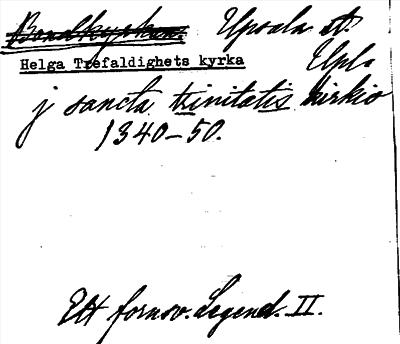 Bondkyrkan Upsala st.
Helga Trefaldighets kyrka Upl.
j sancta trinitatis kirkio
1340-50.
Ett fornsv. Legend. II.